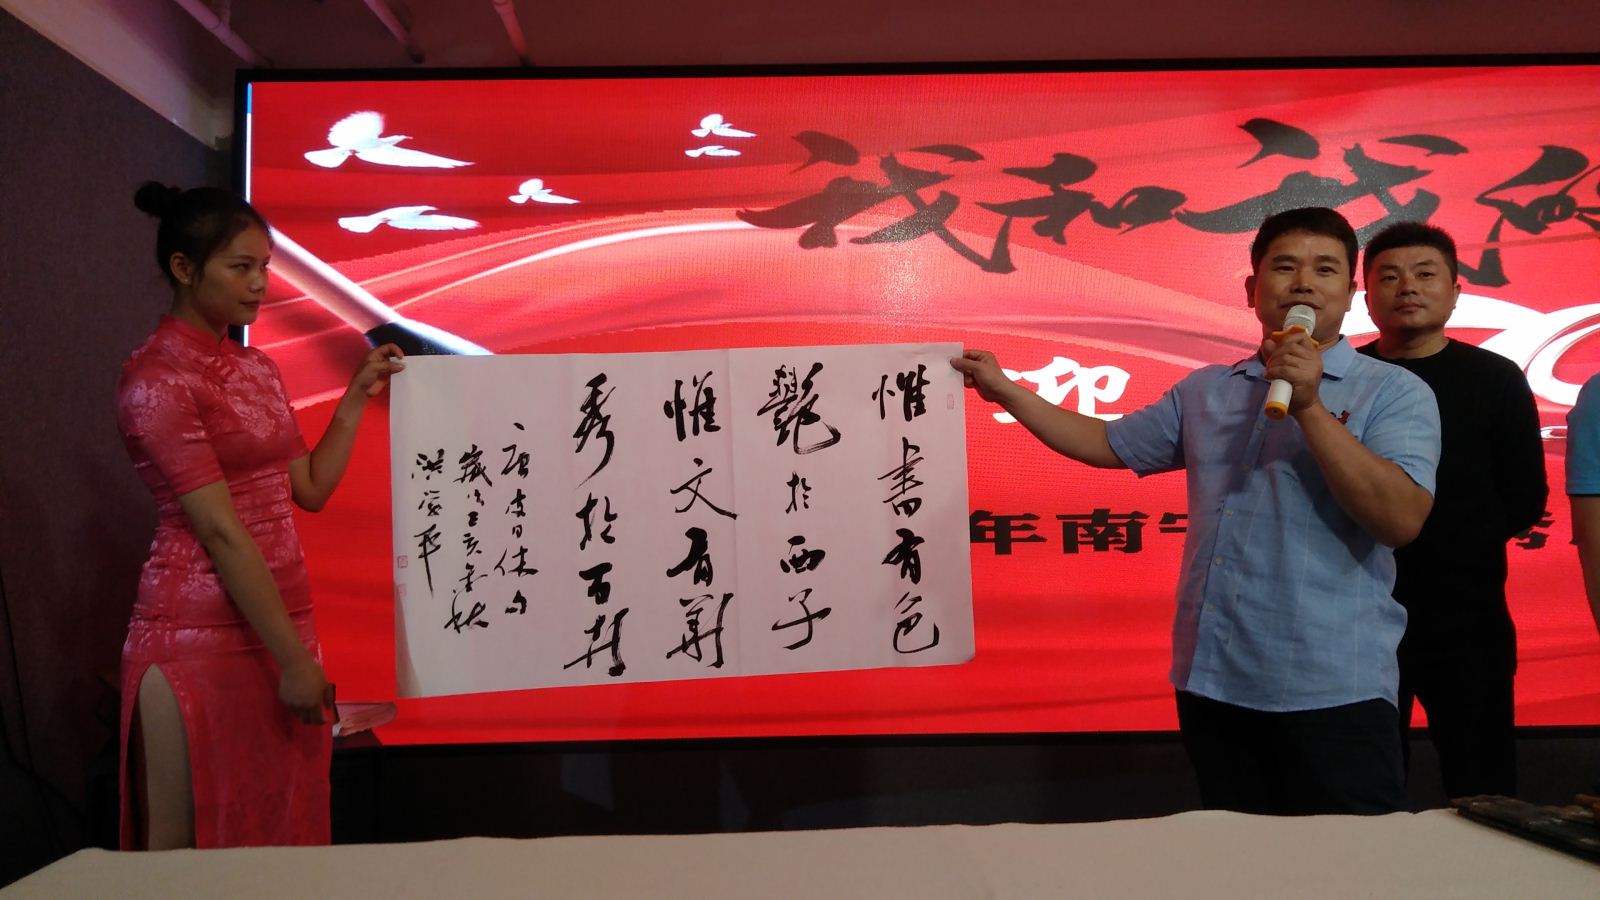 我和我的
70
迎
年南
惟書有色
艷於西子
惟文有華
秀於百卉
唐皮日休句
歲次己亥金秋